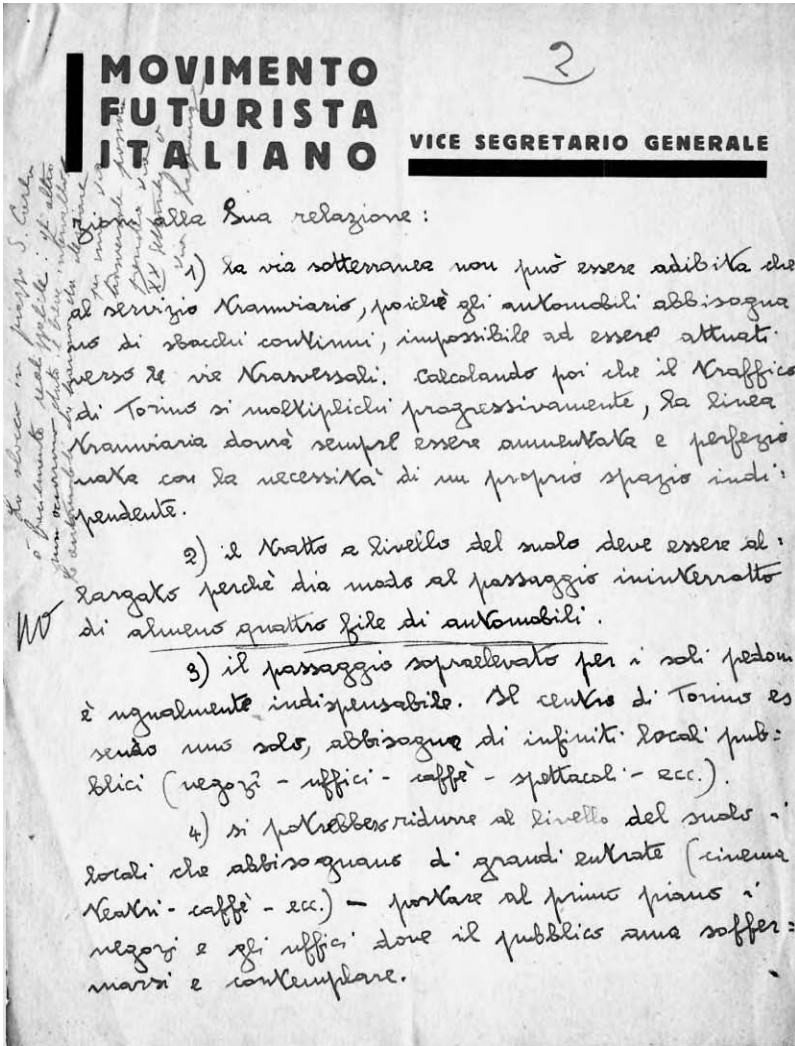 2
MOVIMENTO
FUTURISTA
ITALIANO
VICE SEGRETARIO GENERALE
zioni alla Sua relazione :
1) la via sotterranea non può essere adibita che
al servizio tranviario, poichè gli automobili abbisogna
no di sbocchi continui, impossibile ad essere attuati
verso le vie trasversali. Calcolando poi che il traffico
di Torino si moltiplichi progressivamente, la linea
tranviaria dovrà sempre essere aumentata e perfezio
nata con la necessità di un proprio spazio indi=
pendente.
2) il tratto a livello del suolo deve essere al=
largato perchè dia modo al passaggio ininterrotto
di almeno quattro file di automobili.
3) il passaggio sopraelevato per i soli pedoni
è ugualmente indispensabile. Il centro di Torino es
sendo uno solo, abbisogna di infiniti locali pub=
blici (negozi - uffici - caffè - spettacoli - ecc.).
4) si potrebbero ridurre al livello del suolo i
locali che abbisognano di grandi entrate (cinema
teatri - caffè - ecc.) - portare al primo piano i
negozi e gli uffici dove il pubblico ama soffer=
marsi e contemplare.
NO
Lo sbocco in piazza S. Carlo
è facilmente realizzabile: gli altri
XX Settembre